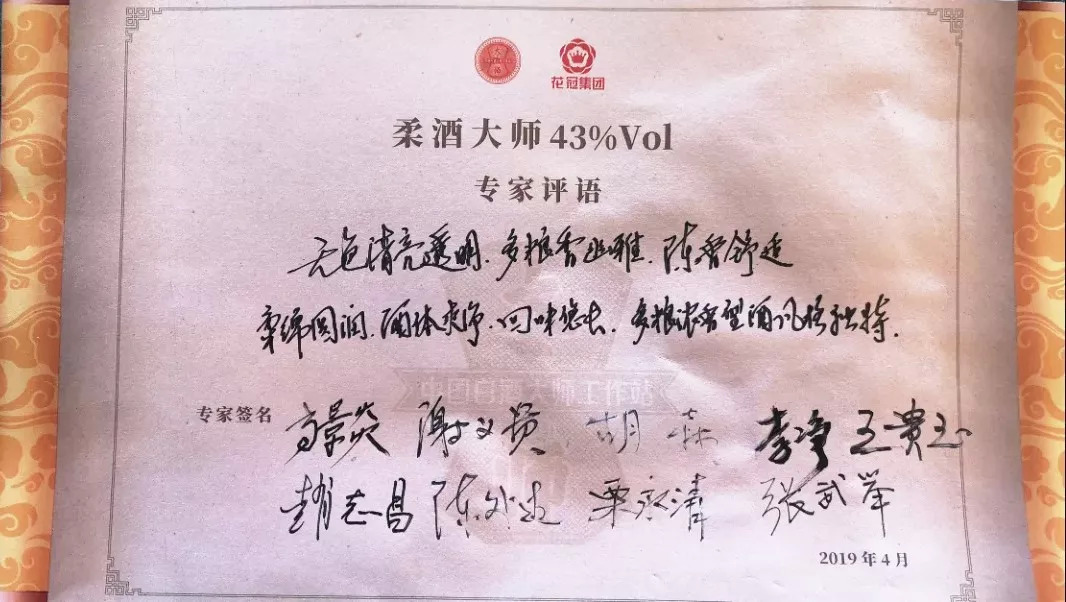 花冠集团
柔酒大师 43%Vol
专家评语
无色清亮透明、多粮香幽雅、陈香舒适
柔绵圆润、酒体爽净、回味悠长、多粮浓香型酒风格独特。
中国白酒大师工作站
专家签名 高景炎 谢义贵 胡森 李净 王贵玉
赵志昌 陈 栗永清 张武举
2019年4月